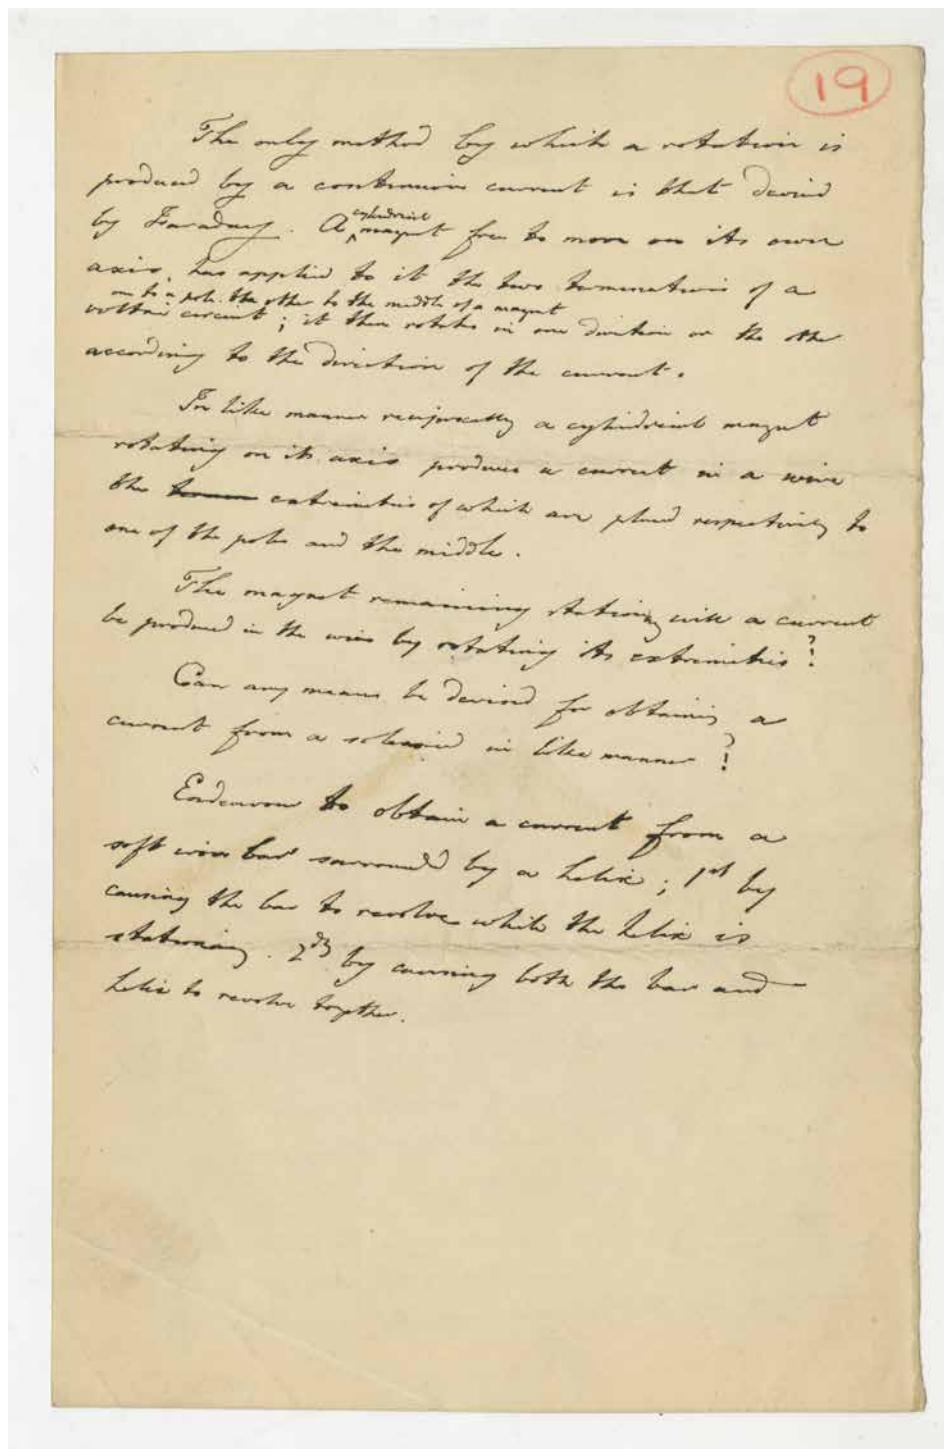 19
The only method by which a rotation is
produced by a continuous current is that devised
by Faraday. A cylindrical magnet free to move on its own
axis, has applied to it the two terminations of a
one to a pole the other to the middle of a magnet
voltaic circuit; it then rotates in one direction or the other
according to the direction of the current.
In like manner reciprocally a cylindrical magnet
rotating on its axis produces a current in a wire
the extremities of which are placed respectively to
one of the poles and the middle.
The magnet remaining stationary will a current
be produced in the wire by rotating its extremities?
Can any means be devised for obtaining a
current from a solenoid in like manner?
Endeavour to obtain a current from a
soft iron bar surrounded by a helix; 1st by
causing the bar to revolve while the helix is
stationary. 2dly by causing both the bar and
helix to revolve together.